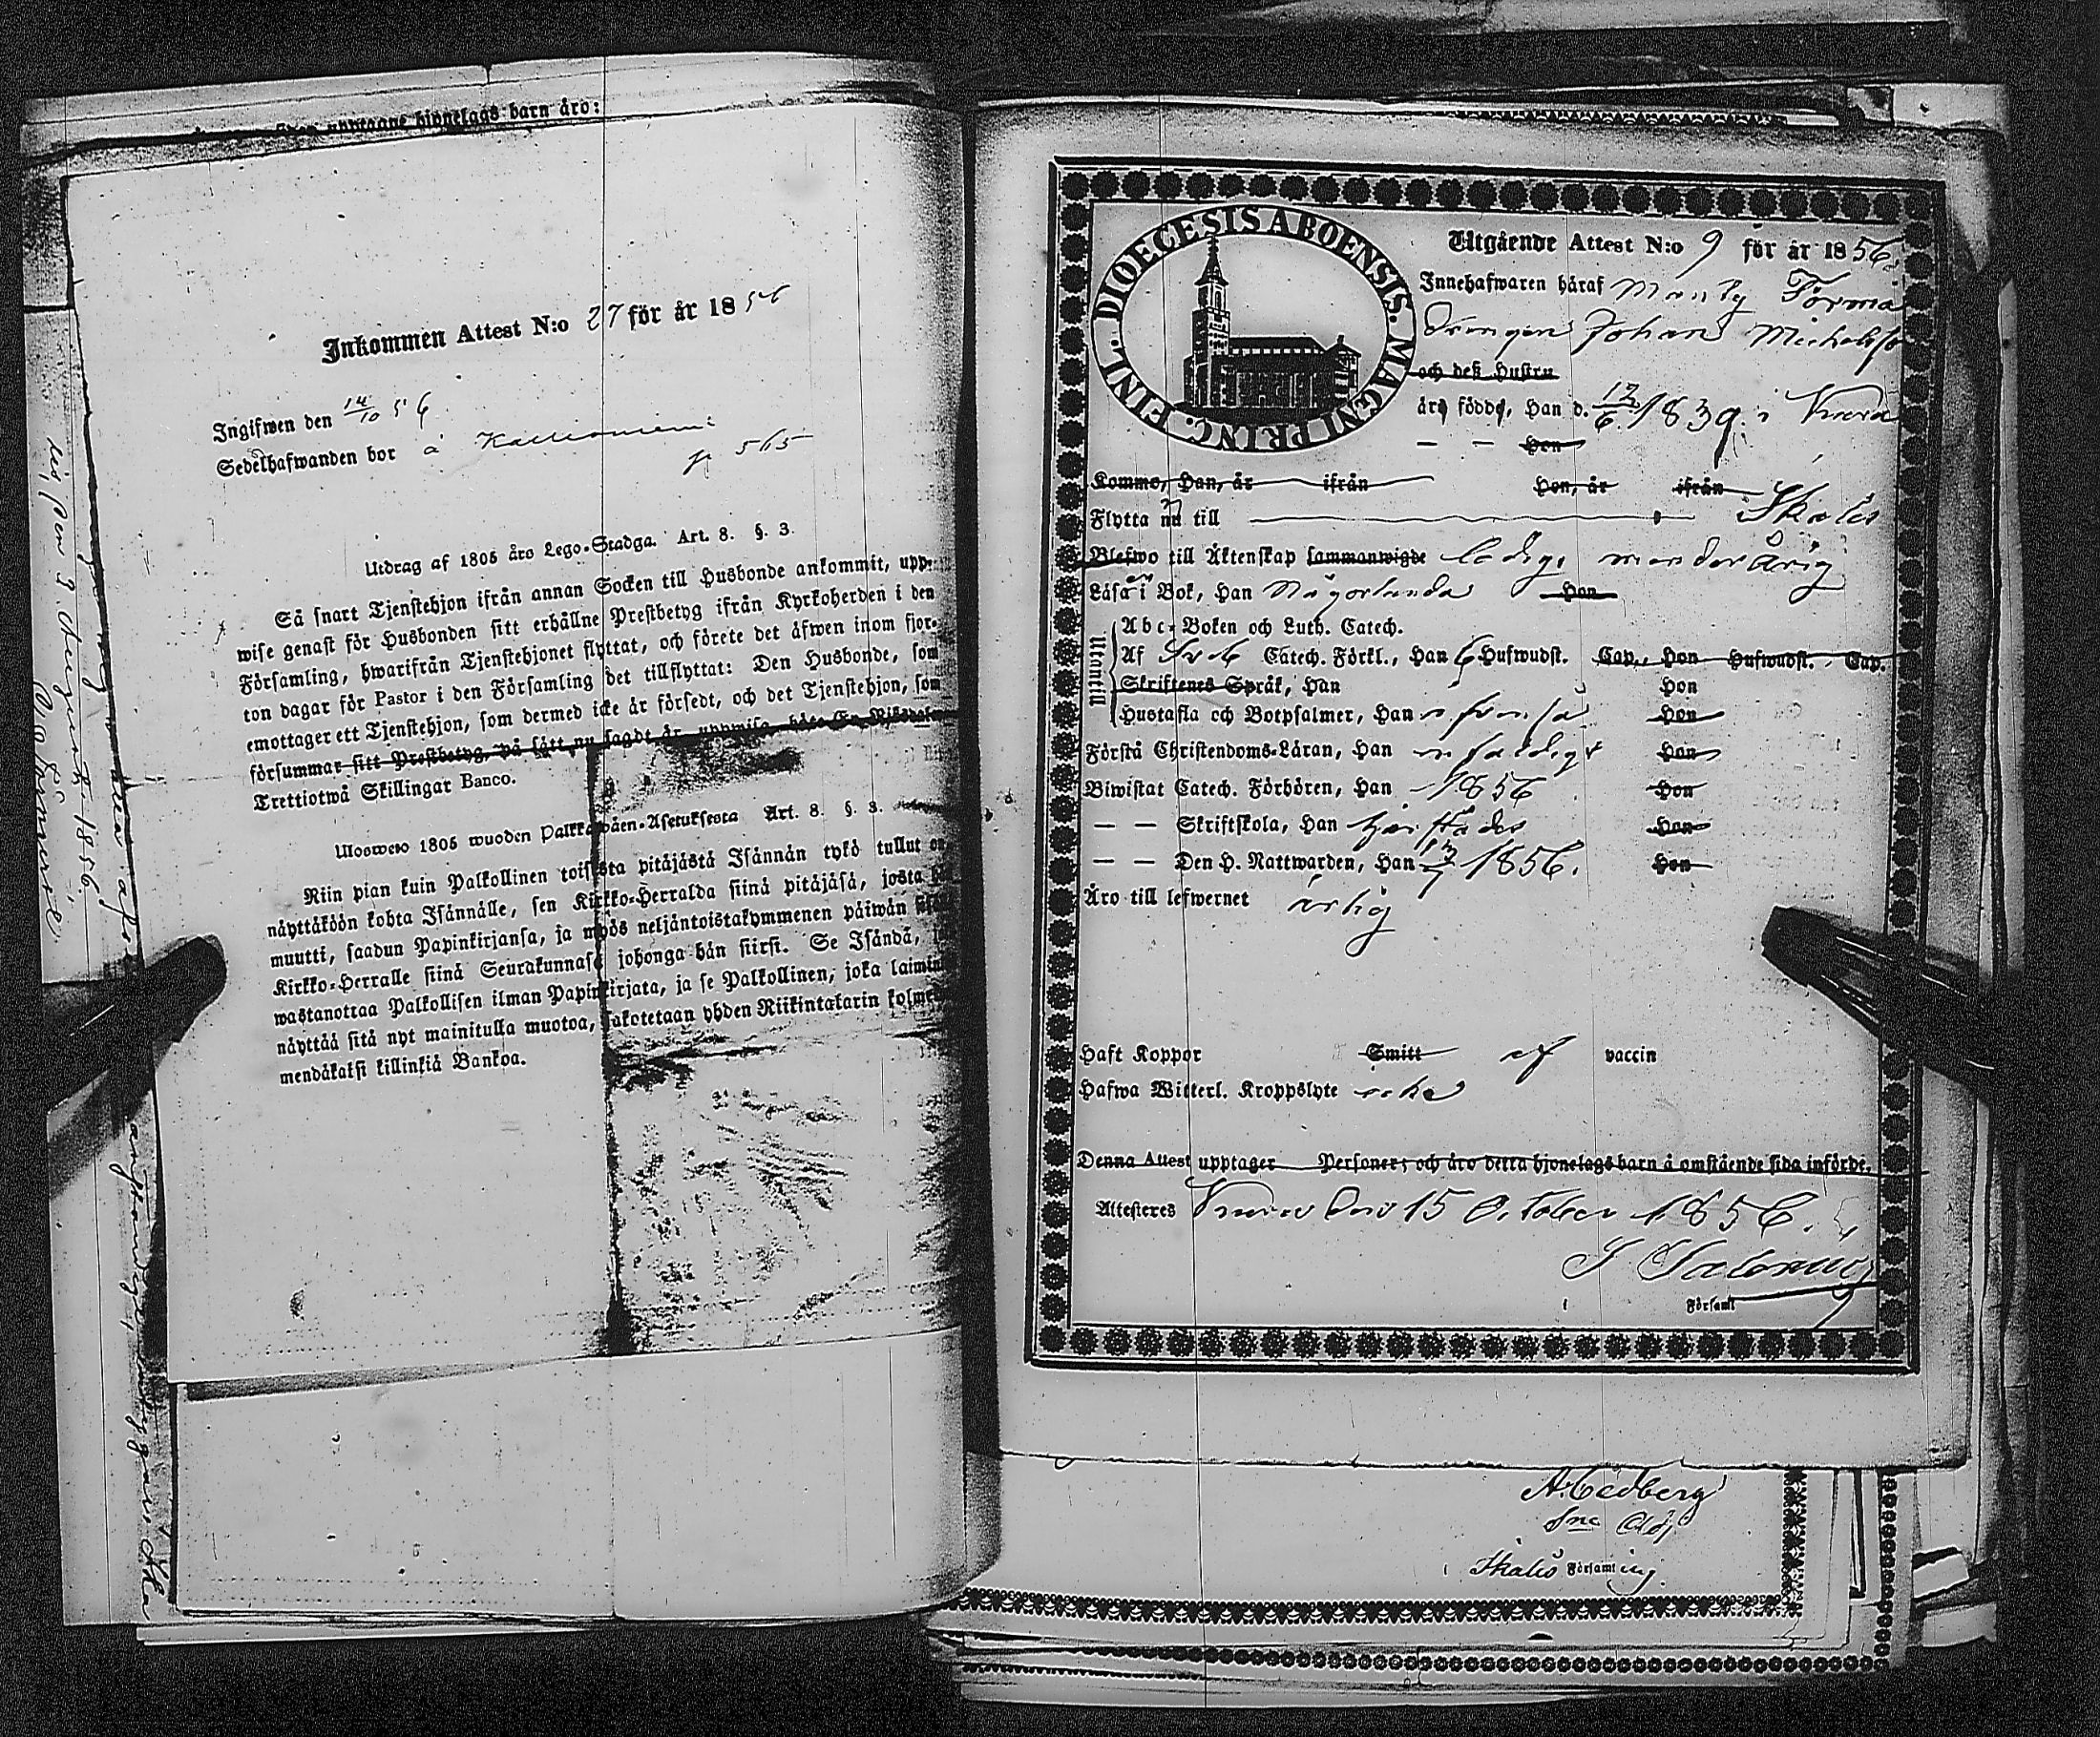 barn äro:
Inkommen Attest N:o 27 för år 1856
Ingifwen den 14/10 56
Sedelhafwanden bor å Kallioniemi
p 565
Utdrag af 1805 års Lego-Stadga. Art. 8. §. 3.
Så snart Tjenstehjon ifrån annan Socken till Husbonde ankommit, upp-
wise genast för Husbonden sitt erhållne Prestbetyg ifrån Kyrkoherden i den
Församling, hwarifrån Tjenstehjonet flyttat, och förete det äfwen inom fjor-
ton dagar för Pastor i den Församling det tillflyttat: Den Husbonde, som
emottager ett Tjenstehjon, som dermed icke är försedt, och det Tjenstehjon, som
försummar sitt Prestbetyg, på sätt nu sagdt är, uppwisa, böte En Riksdaler
Trettiotwå Skillingar Banco.
Uloswето 1805 wuoden Palkkawäen-Asetuksesta Art. 8. §. 3.
Niin pian kuin Palkollinen toisesta pitäjästä Isännän tykö tullut on
näyttäköön kohta Isännälle, sen Kirkko-Herralda siinä pitäjäsä, josta hän
muutti, saadun Papinkirjansa, ja myös neljäntoistakymmenen päiwän
Kirkko-Herralle siinä Seurakunnasa johonga hän siirsi. Se Isändä,
wastanottaa Palkollisen ilman Papinkirjata, ja se Palkollinen, joka laimin
näyttää sitä nyt mainitulla muotoa, sakotetaan yhden Riikintalarin kolme
mendäkaksi killinkiä Bankoa.
DIOECESIS ABOENSIS. MAGNI PRINC. FINL.
Utgående Attest N:o 9 för år 1856.
Innehafwaren häraf
Drengen Johan Michelsso
och deß Hustru
äro födde, Han d. 12/6 1839. i
— — Hon
Komme, Han, år ifrån Hon, år ifrån
Flytta nu till Ikalis
Blefwo till Äktenskap sammanwigde ledig, minderårig
Läsa i Bok, Han Någorlunda Hon
Utantill
Abc-Boken och Luth. Catech.
Af Sveb Catech. Förkl., Han 6 Hufwudst. Cap., Hon Hufwudst. Cap.
Skriftenes Språk, Han Hon
Hustafla och Botpsalmer, Han Hon
Förstå Christendoms-Läran, Han Hon
Biwistat Catech. Förhören, Han 1856 Hon
— — Skriftskola, Han Hon
— — Den H. Nattwarden, Han 13/7 1856. Hon
Äro till lefwernet ärlig
Haft Koppor Smitt af vaccin
Hafwa Witterl. Kroppslyte icke
Denna Attest upptager Personer; och äro detta hjonelags barn å omstående sida införde.
Attesteres den 15 October 1856.
Församl
A. Cedberg
Ikalis Församling.